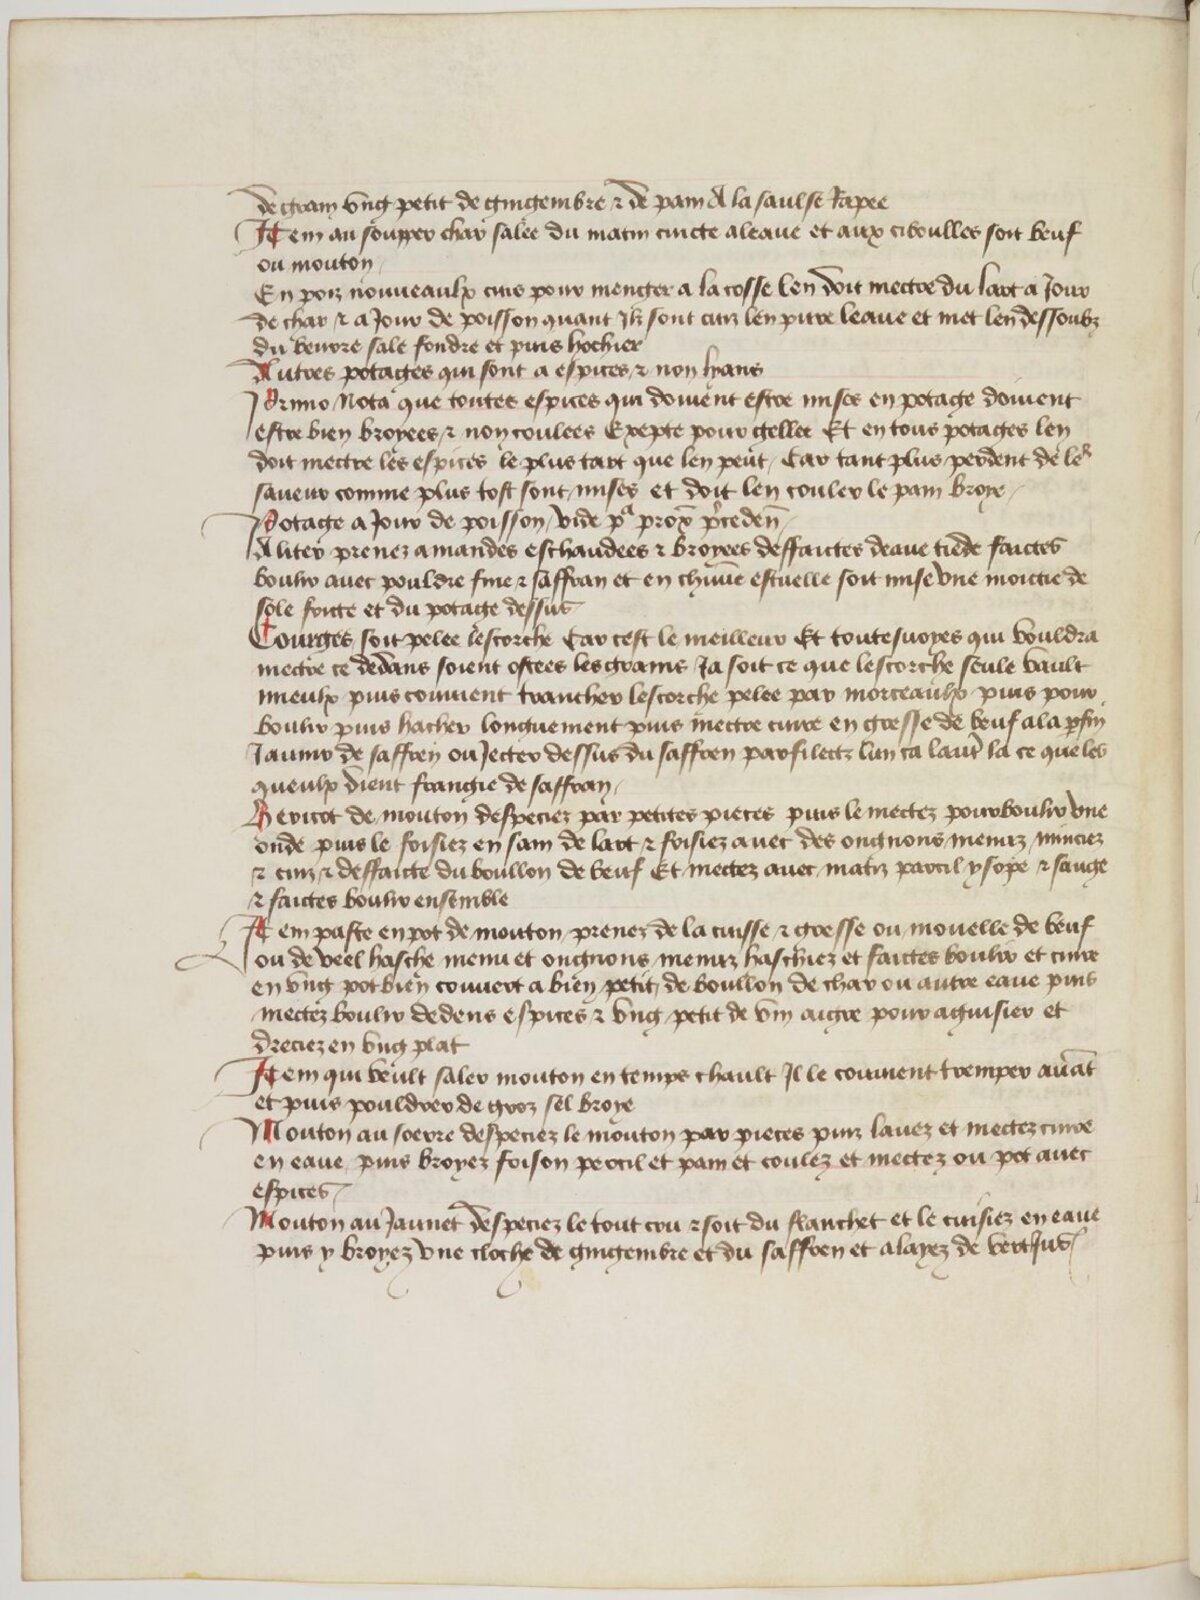 de grain ung petit de gingembre ⁊ de pain A la saulse Rapee
Item au soupper char salee du matin cuicte a leaue et aux ciboulles soit beuf
ou mouton
En pois nouueaulx cuis pour menger a la cosse len doit mectre du lart a Jour
de char ⁊ a Jour de poisson quant Ilz sont cuiz len puree leaue et met len dessoubz
du beurre sale fondre et puis hochier
Autres potages qui sont a espices ⁊ non lyans
Primo Nota que toutes espices qui doiuent estre mises en potage doiuent
estre bien broyees ⁊ non coulees Exepte pour gellee Et en tous potages len
doit mectre les espices le plus tart que len peut Car tant plus perdent de leʳ
saueur comme plus tost sont mises et doit len couler le pain broye
Potage a Jour de poisson vide pᵃ prox̄ p̄ceden̄
Aliter prenez amandes eschaudees ⁊ broyees deffaictes deaue tiede faictes
boulir auec pouldre fine ⁊ saffran et en chūne escuelle soit mise vne moictie de
sole fricte et du potage dessus
Courges soit pelee lescorche Car cest le meilleur Et toutesuoyes qui vouldra
mectre ce dedans soient ostees les grains Ja soit ce que lescorche seule vault
mieulx puis conuient trancher lescorche pelee par morceaulx puis pour
boulir puis hacher longuement puis mectre cuire en gresse de beuf a la p̱fin
Jaunir de saffren ou Jecter dessus du saffren par filectz lun ca laut̾ la ce que les
queulx dient frangie de saffran
Hericot de mouton despeciez par petites pieces puis le mectez pourboulir vne
onde puis le frisiez en sain de lart ⁊ frisiez auec des ongnons menuz minciez
⁊ cuiz ⁊ deffaicte du boullon de beuf Et mectez auec matiz parcil ysope ⁊ sauge
⁊ faictes boulir ensemble
Item paste en pot de mouton prenez de la cuisse ⁊ gresse ou mouelle de beuf
ou de veel hasche menu et ongnons menuz haschiez et faictes boulir et cuire
en ung pot bien couuert a bien petit de boullon de char ou autre eaue puis
mectez boulir dedens espices ⁊ ung petit de vin aigre pour aguisier et
dreciez en ung plat
Item qui veult saler mouton en temps chault Il le conuient tremper auāt
et puis pouldrer de gros sel broye
Mouton au soerre despeciez le mouton par pieces puiz lauez et mectez cuire
en eaue puis broyez foison percil et pain et coulez et mectez ou pot auec
espices
Mouton au Jaunet despeciez le tout cru ⁊ soit du flanchet et le cuisiez en eaue
puis y broyez vne cloche de gingembre et du saffren et alayez de vertJus